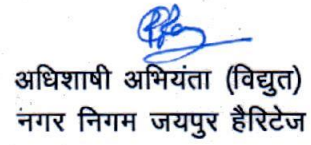 अधिशाषी अभियंता (विद्युत)
नगर निगम जयपुर हैरिटेज